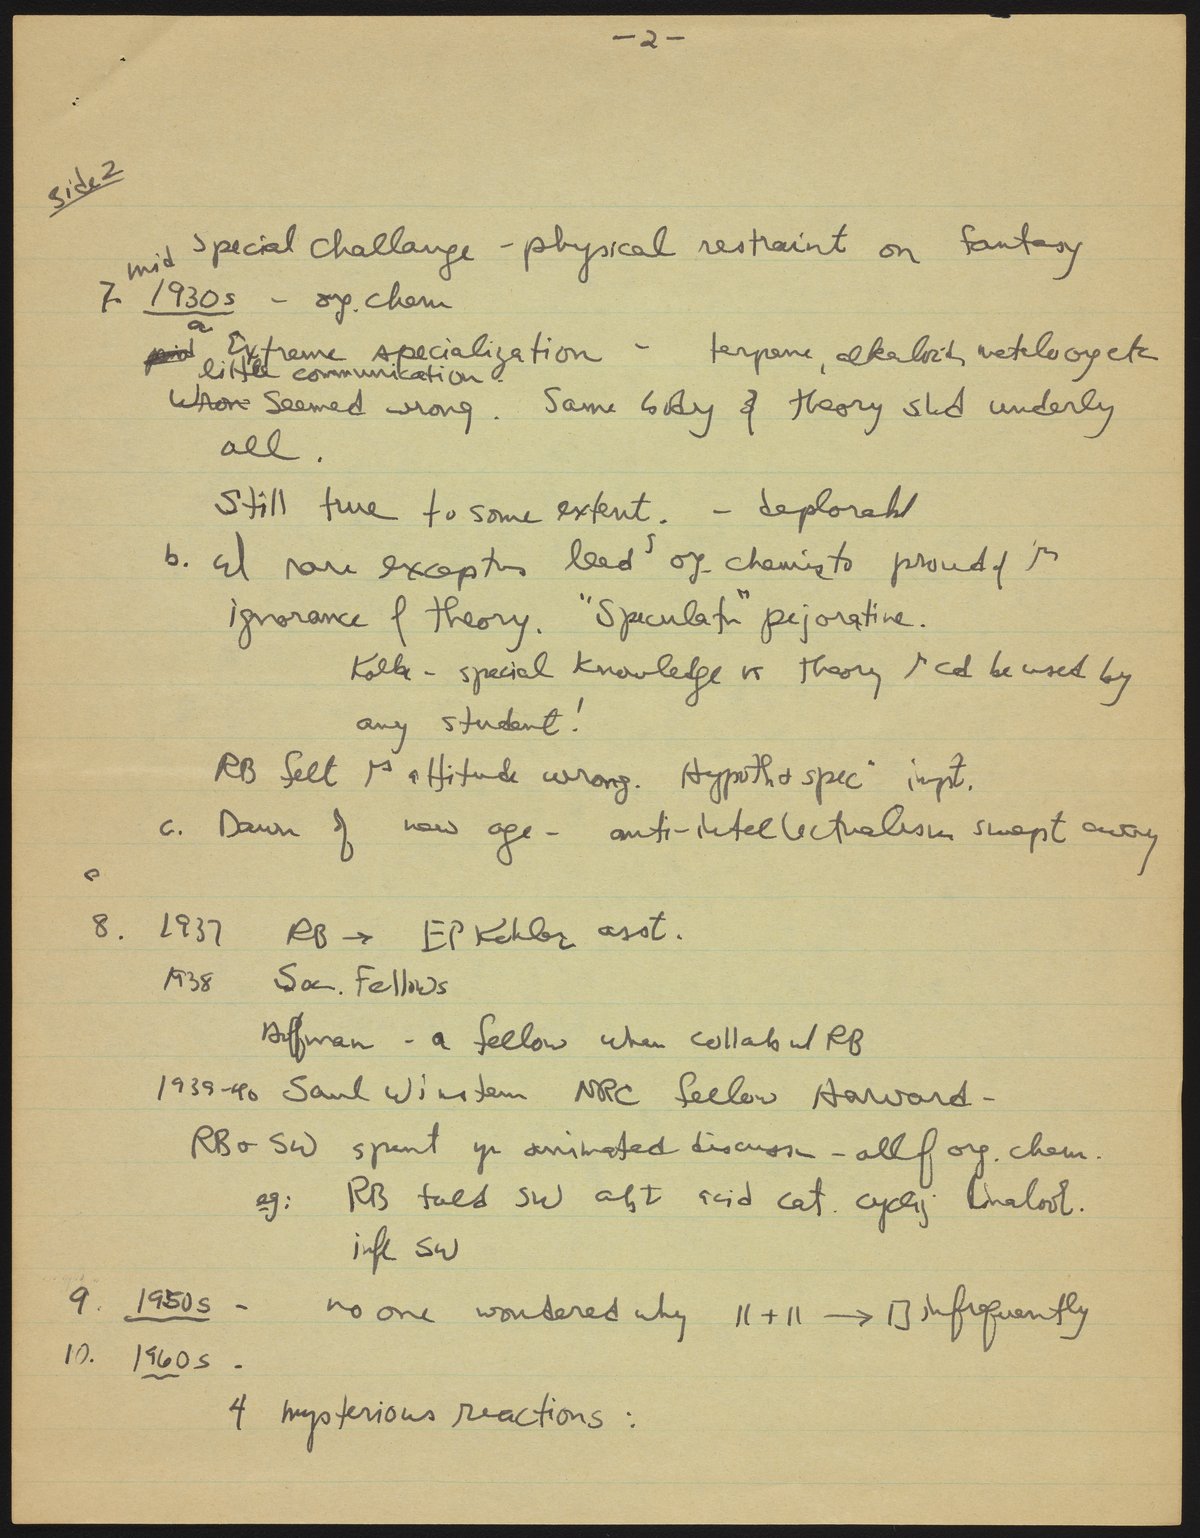 - 2 -
Side 2
Special Challange - physical restraint on fantasy
mid
7. 1930s - org. chem
a
Extreme specialization - terpene, alkaloid, etc
little communication.
Wron Seemed wrong. Same body of theory shd underly
all.
Still true to some extent. - deplorabl
b. w/ rare exceptns leads org. chemists proud of
ignorance of theory. "Speculatn" pejorative.
Kolbe - special knowledge vs theory cd be used by
any student!
RB felt attitude wrong. Hypoth & spec impt.
c. Dawn of new age - anti-intellectualism swept away
8. 1937 RB → EP Kohler asst.
1938 Soc. Fellows
Hoffman - a fellow when collab w/ RB
1939-40 Saul Winstein NRC fellow Harvard -
RB & SW spent yr animated discussn - all of org. chem.
eg: RB told SW abt acid cat. cycliz linalool.
infl SW
9. 1950s - no one wondered why || + || → □ infrequently
10. 1960s -
4 mysterious reactions: